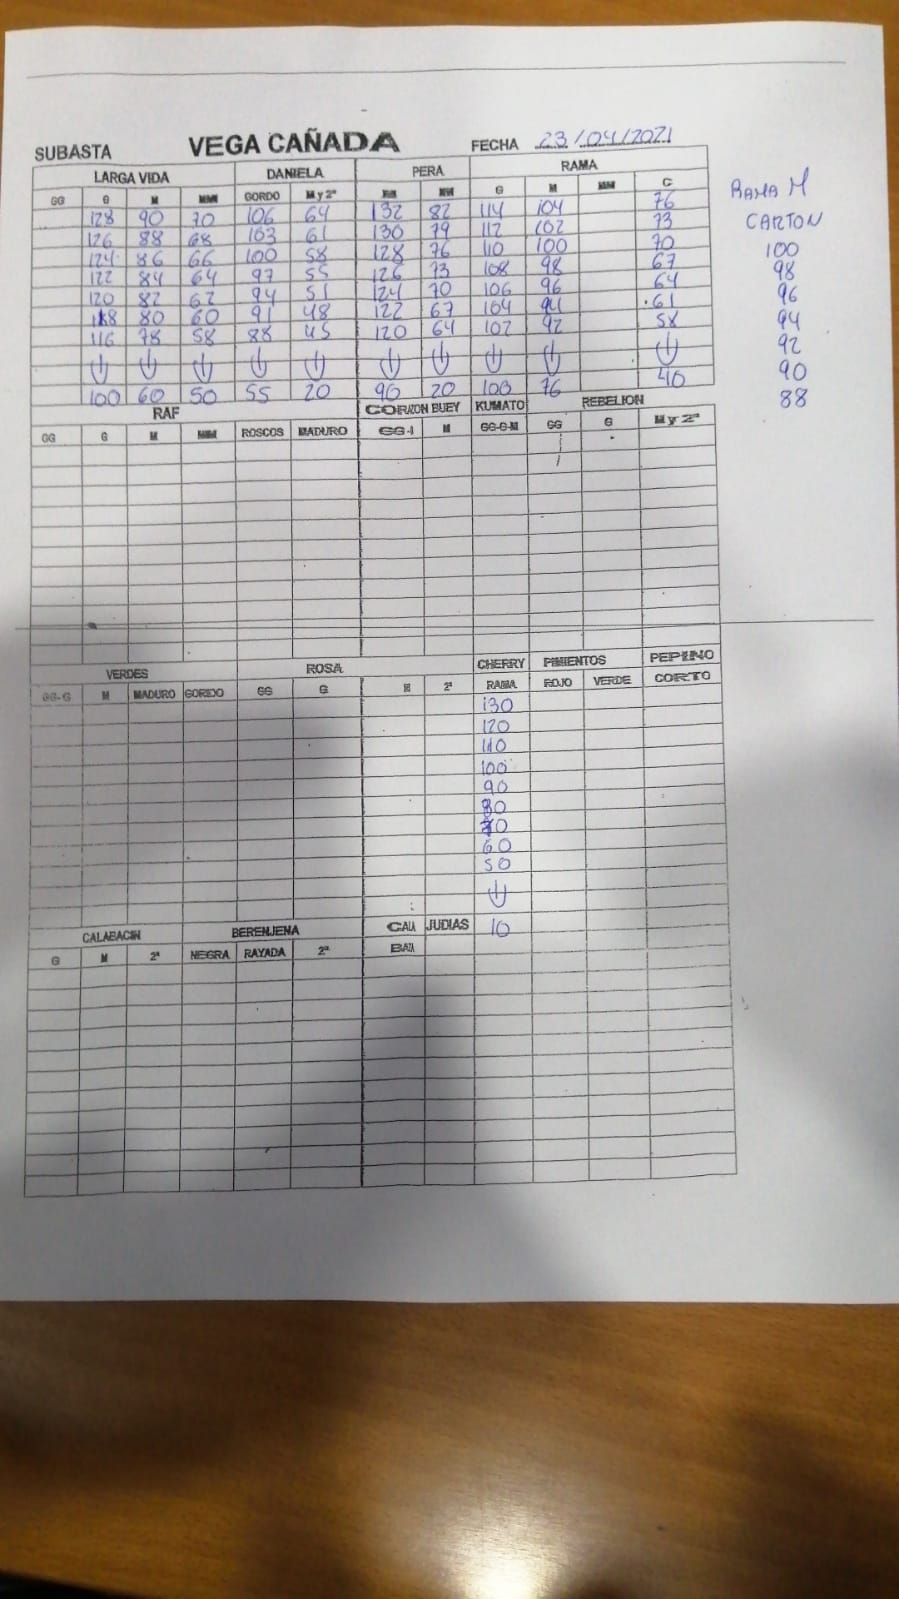 SUBASTA VEGA CAÑADA FECHA 23/04/2021
LARGA VIDA DANIELA PERA RAMA
GG G M MM GORDO M y 2ª MM G M MM C
128 90 70 106 64 132 82 114 104 76
126 88 68 103 61 130 79 112 102 73
124 86 66 100 58 128 76 110 100 70
122 84 64 97 55 126 73 108 98 67
120 82 62 94 51 124 70 106 96 64
118 80 60 91 48 122 67 104 94 61
116 78 58 88 45 120 64 102 92 58
100 60 50 55 20 90 20 100 76 40
RAMA M
CARTON
100
98
96
94
92
90
88
RAF CORAZON BUEY KUMATO REBELION
GG G M MM ROSCOS MADURO GG-I M GG-G-M GG G M y 2ª
VERDES ROSA CHERRY PIMIENTOS PEPINO
GG-G M MADURO GORDO GG G M 2ª RAMA ROJO VERDE CORTO
130
120
110
100
90
80
70
60
50
10
CALABACIN BERENJENA JUDIAS
G M 2ª NEGRA RAYADA 2ª